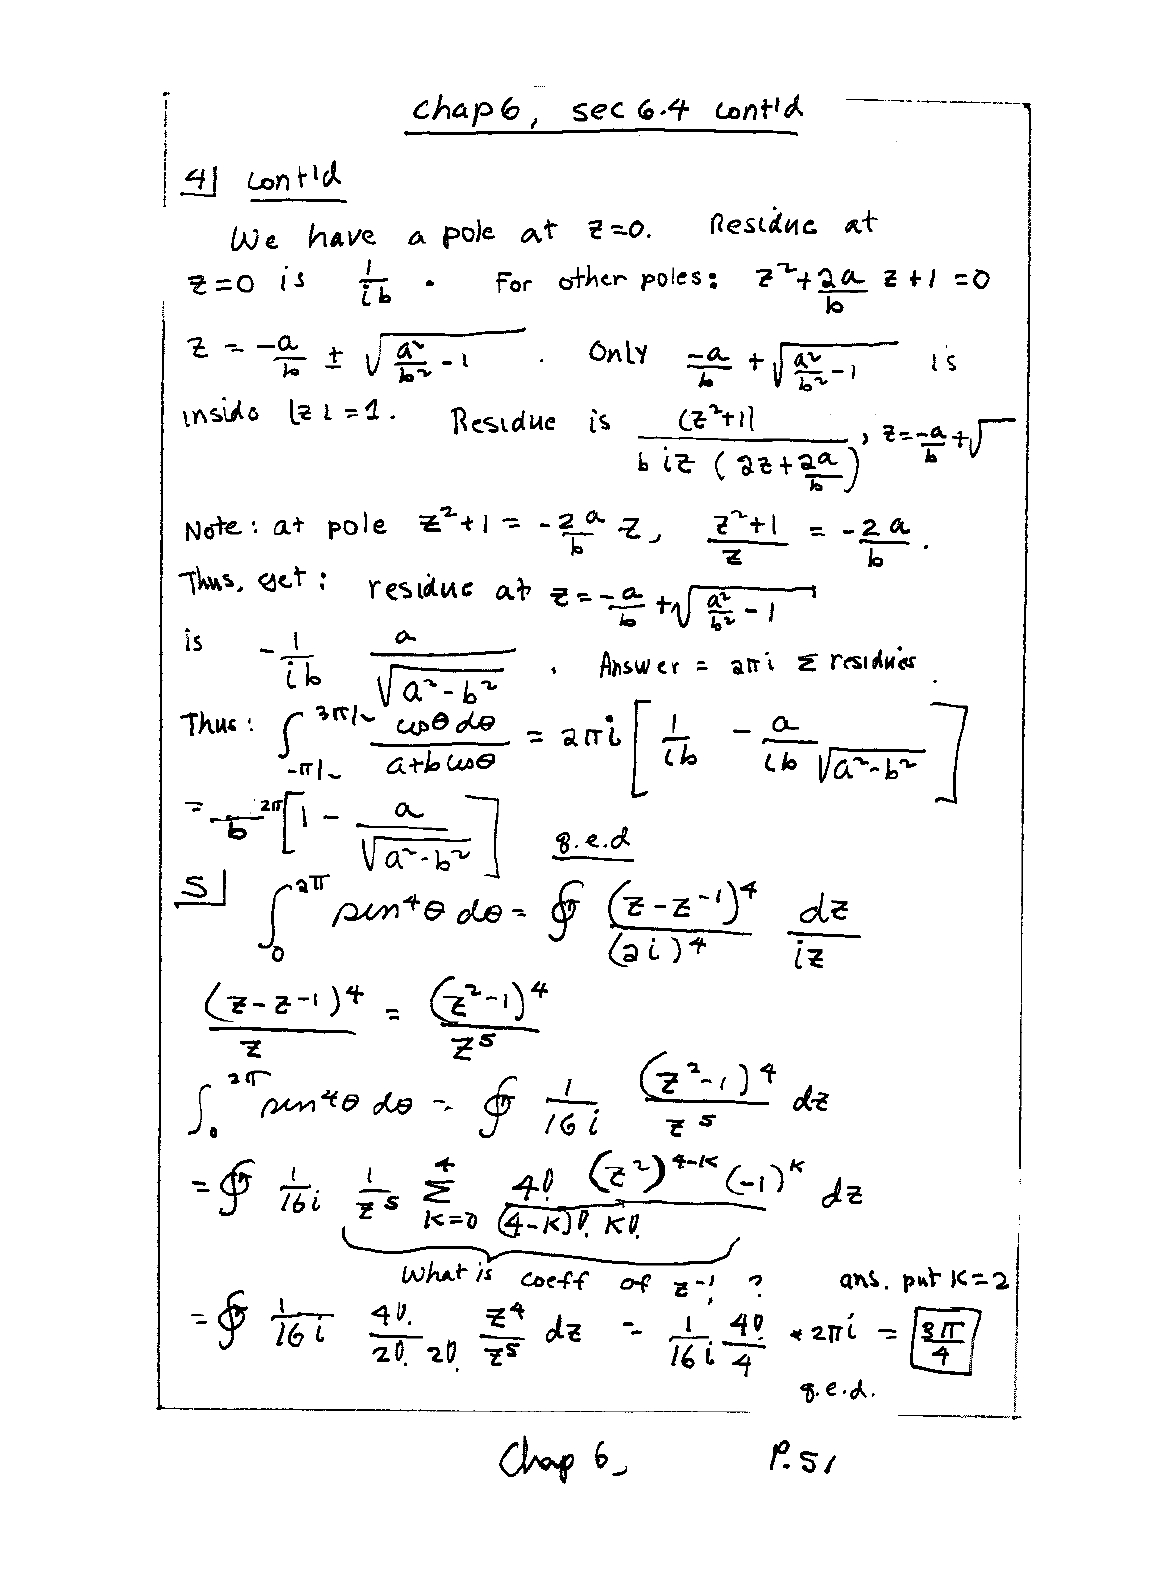 Chap 6, sec 6.4 cont'd
4] cont'd
We have a pole at z=0. Residue at
z=0 is 1/(ib). For other poles: z²+(2a/b) z+1=0
z = -a/b ± √(a²/b² - 1). Only -a/b + √(a²/b² - 1) is
inside |z|=1. Residue is (z²+1)/(b i z (2z + 2a/b)), z = -a/b + √
Note: at pole z²+1 = -2 a/b z, (z²+1)/z = -2 a/b.
Thus, get: residue at z = -a/b + √(a²/b² - 1)
is -1/(ib) a/√(a²-b²). Answer = 2πi Σ residues.
Thus: ∫_{-π/2}^{3π/2} cosθ dθ/(a+b cosθ) = 2πi [1/(ib) - a/(ib √(a²-b²))]
= 2π/b [1 - a/√(a²-b²)] q.e.d
5] ∫₀^{2π} sin⁴θ dθ = ∮ (z-z⁻¹)⁴/(2i)⁴ dz/(iz)
(z-z⁻¹)⁴/z = (z²-1)⁴/z⁵
∫₀^{2π} sin⁴θ dθ = ∮ 1/(16i) (z²-1)⁴/z⁵ dz
= ∮ 1/(16i) 1/z⁵ Σ_{k=0}^{4} 4! (z²)^{4-k} (-1)^k/((4-k)! k!) dz
What is coeff of z⁻¹ ? ans. put k=2
= ∮ 1/(16i) 4!/(2! 2!) z⁴/z⁵ dz = 1/(16i) 4!/4 * 2πi = 3π/4
q.e.d.
Chap 6, P.51